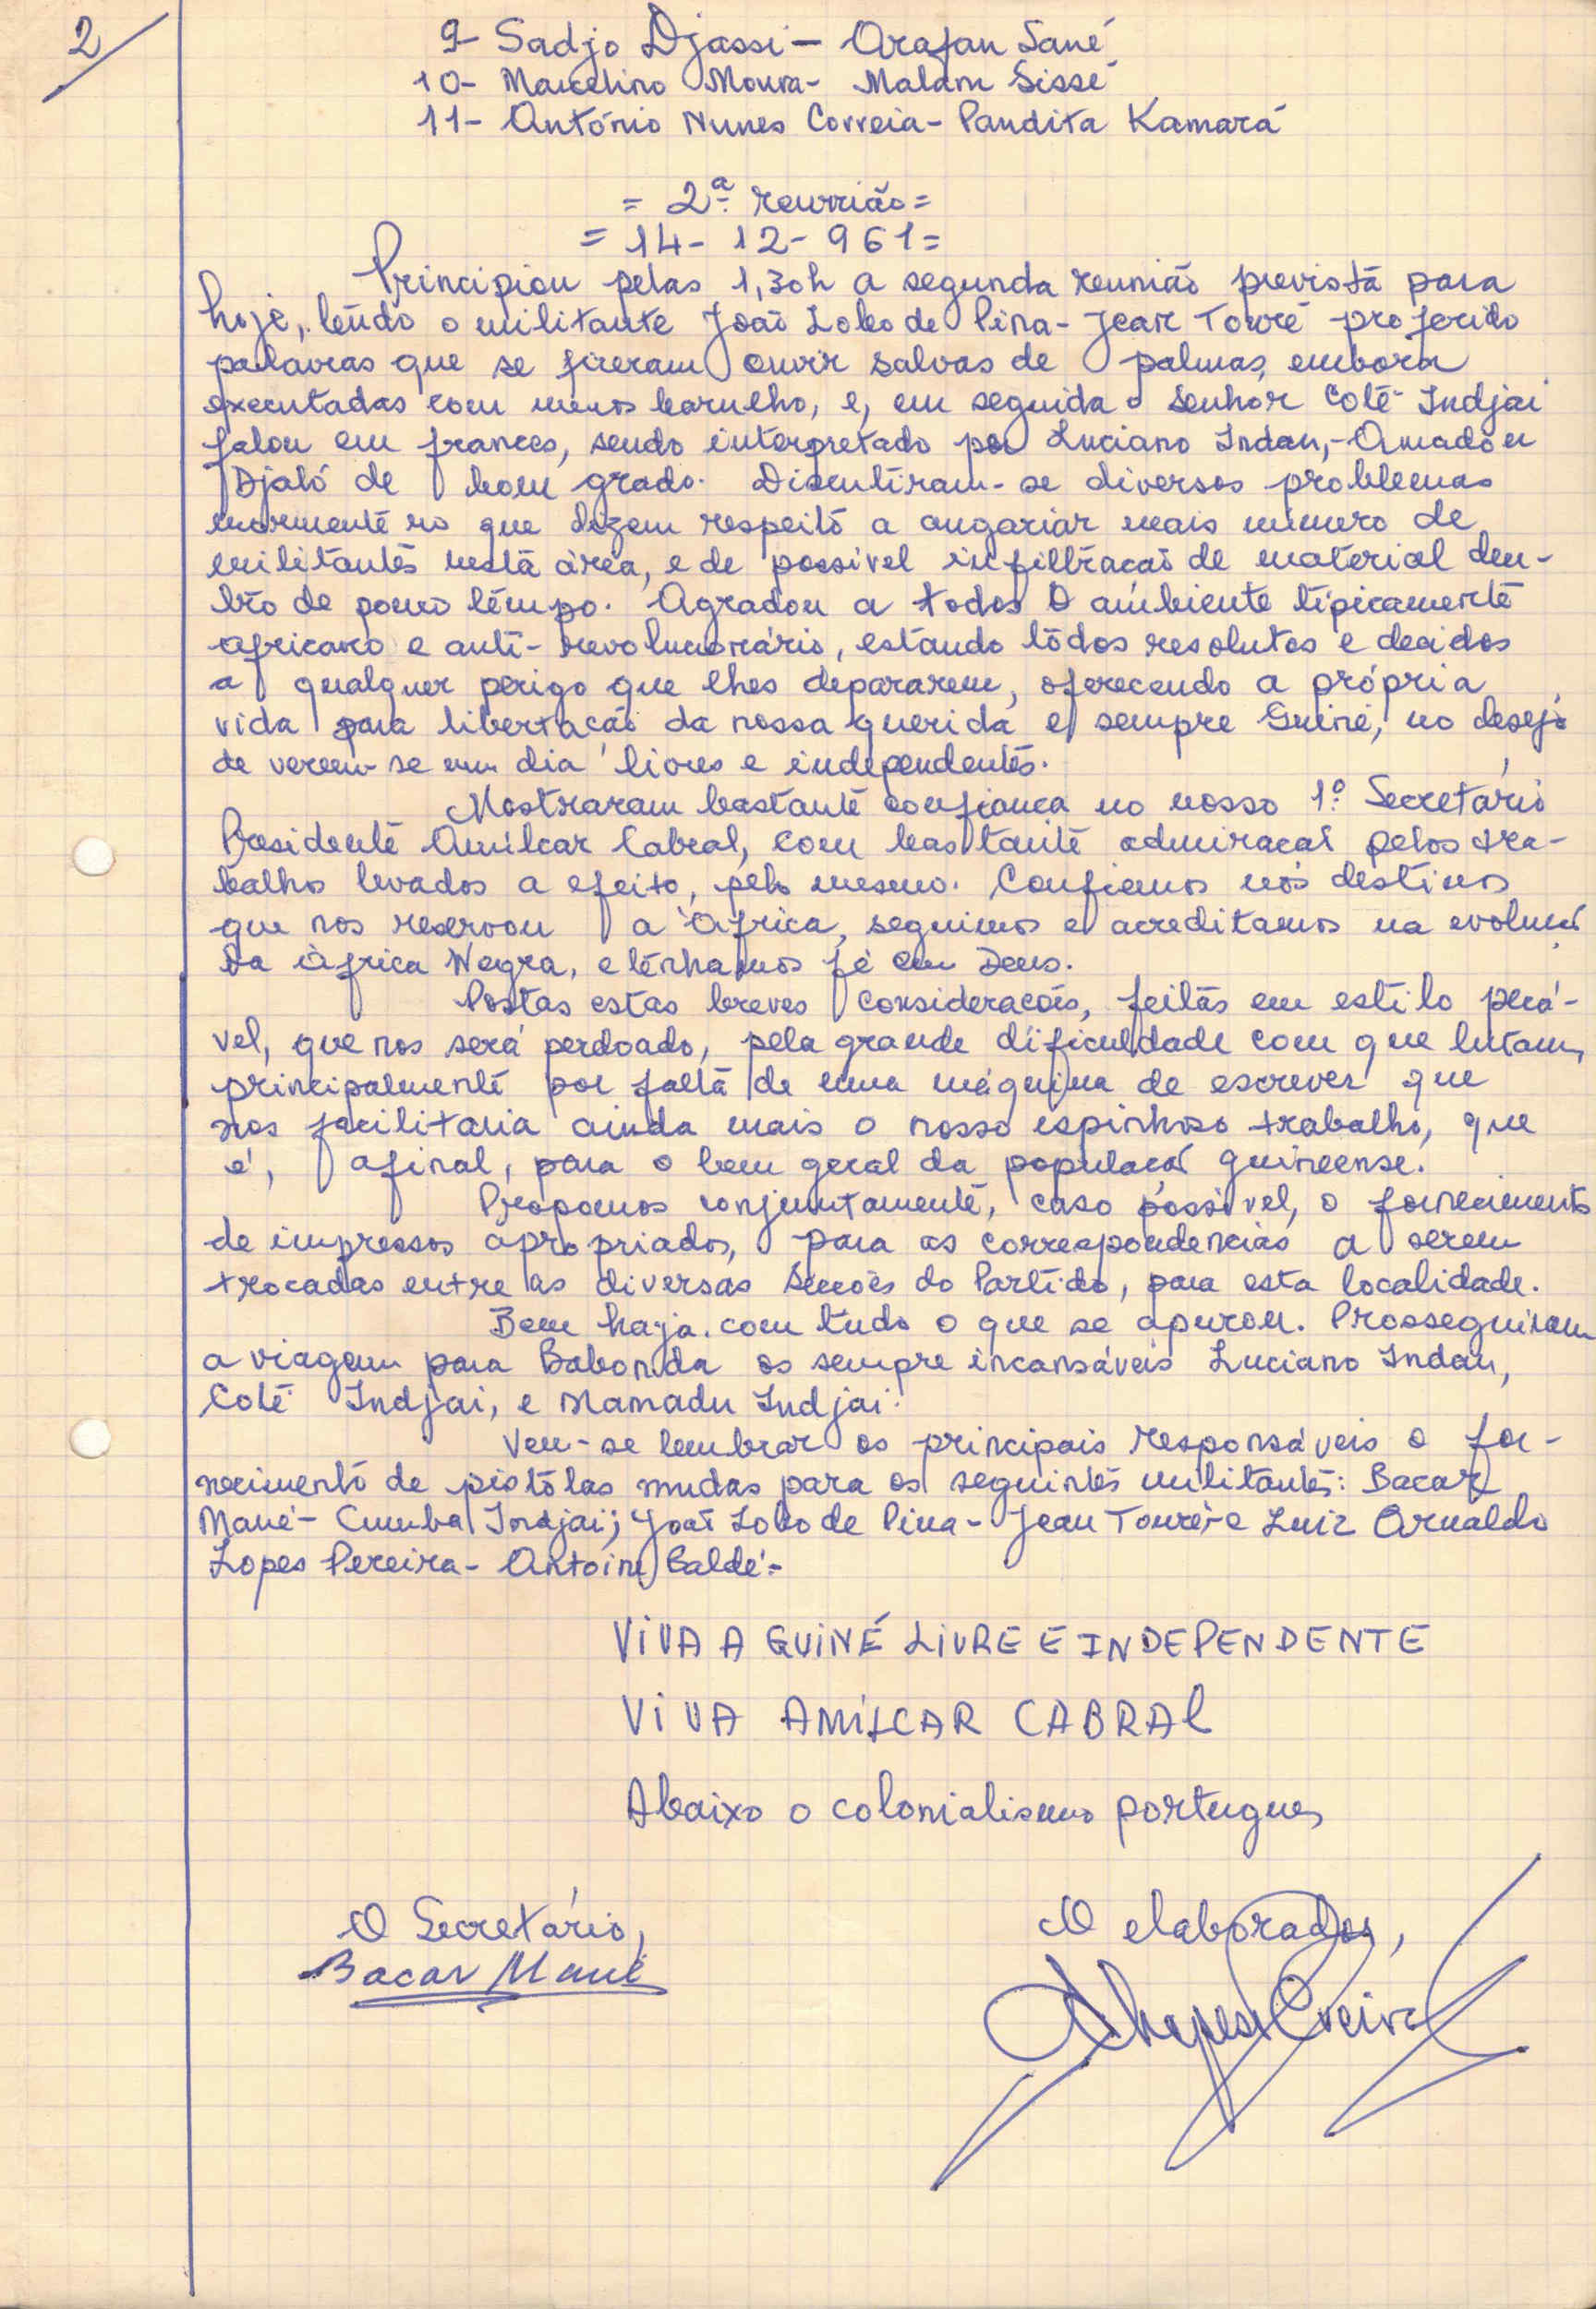 2
9- Sadjo Djassi - Arafan Sané
10- Marcelino Moura - Malam Sissé
11- António Nunes Correia - Pandita Kamará
= 2ª reunião =
= 14-12-961 =
Principiou pelas 1,30h a segunda reunião prevista para
hoje, tendo o militante João Lobo de Pina - Jean Touré proferido
palavras que se fizeram ouvir salvas de palmas, embora
executadas com menos barulho, e, em seguida o Senhor Coté Indjai
falou em frances, sendo interpretado por Luciano Indau,- Amadou
Djaló de bom grado. Discutiram-se diversos problemas
mormente no que dizem respeito a angariar mais número de
militantes nesta àrea, e de possivel infiltracão de material den-
tro de pouco tempo. Agradou a todos O ambiente tipicamente
africano e anti-revolucionário, estando tôdos resolutos e decidos
a qualquer perigo que lhes depararem, oferecendo a própria
vida para libertação da nossa querida e sempre Guiné, no desejo
de verem-se um dia livres e independentes.
Mostraram bastante confianca no nosso 1º Secretário
Presidente Amílcar Cabral, com bastante admiracaõ pelos tra-
balhos levados a efeito, pelo mesmo. Confiemos nos destinos
que nos reservou a Africa, seguimos e acreditamos na evolucaõ
Da Àfrica Negra, e tenhamos fé em Deus.
Postas estas breves consideracoẽs, feitas em estilo perá-
vel, que nos será perdoado, pela grande dificuldade com que lutam,
principalmente por falta de uma máquina de escrever que
nos facilitaria ainda mais o nosso espinhoso trabalho, que
é, afinal, para o bem geral da populacaõ guineense.
Propomos conjuntamente, caso possivel, o fornecimento
de impressos apropriados, para as correspondencias a serem
trocadas entre as diversas Seccoẽs do Partido, para esta localidade.
Bem haja, com tudo o que se apurou. Prosseguiram
a viagem para Babonda os sempre incansáveis Luciano Indau,
Coté Indjai, e Mamadu Indjai.
Vem-se lembrar os principais responsáveis o for-
necimento de pistôlas mudas para os seguintes militantes: Bacar
Mané - Cumba Indjai; Joaõ Lobo de Pina - Jean Touré,- e Luiz Arnaldo
Lopes Pereira - Antoine Baldé.-
VIVA A GUINÉ LIVRE E INDEPENDENTE
VIVA AMÍLCAR CABRAL
Abaixo o colonialismo portugues
O Secretário,
Bacar Mané
O elaborador,